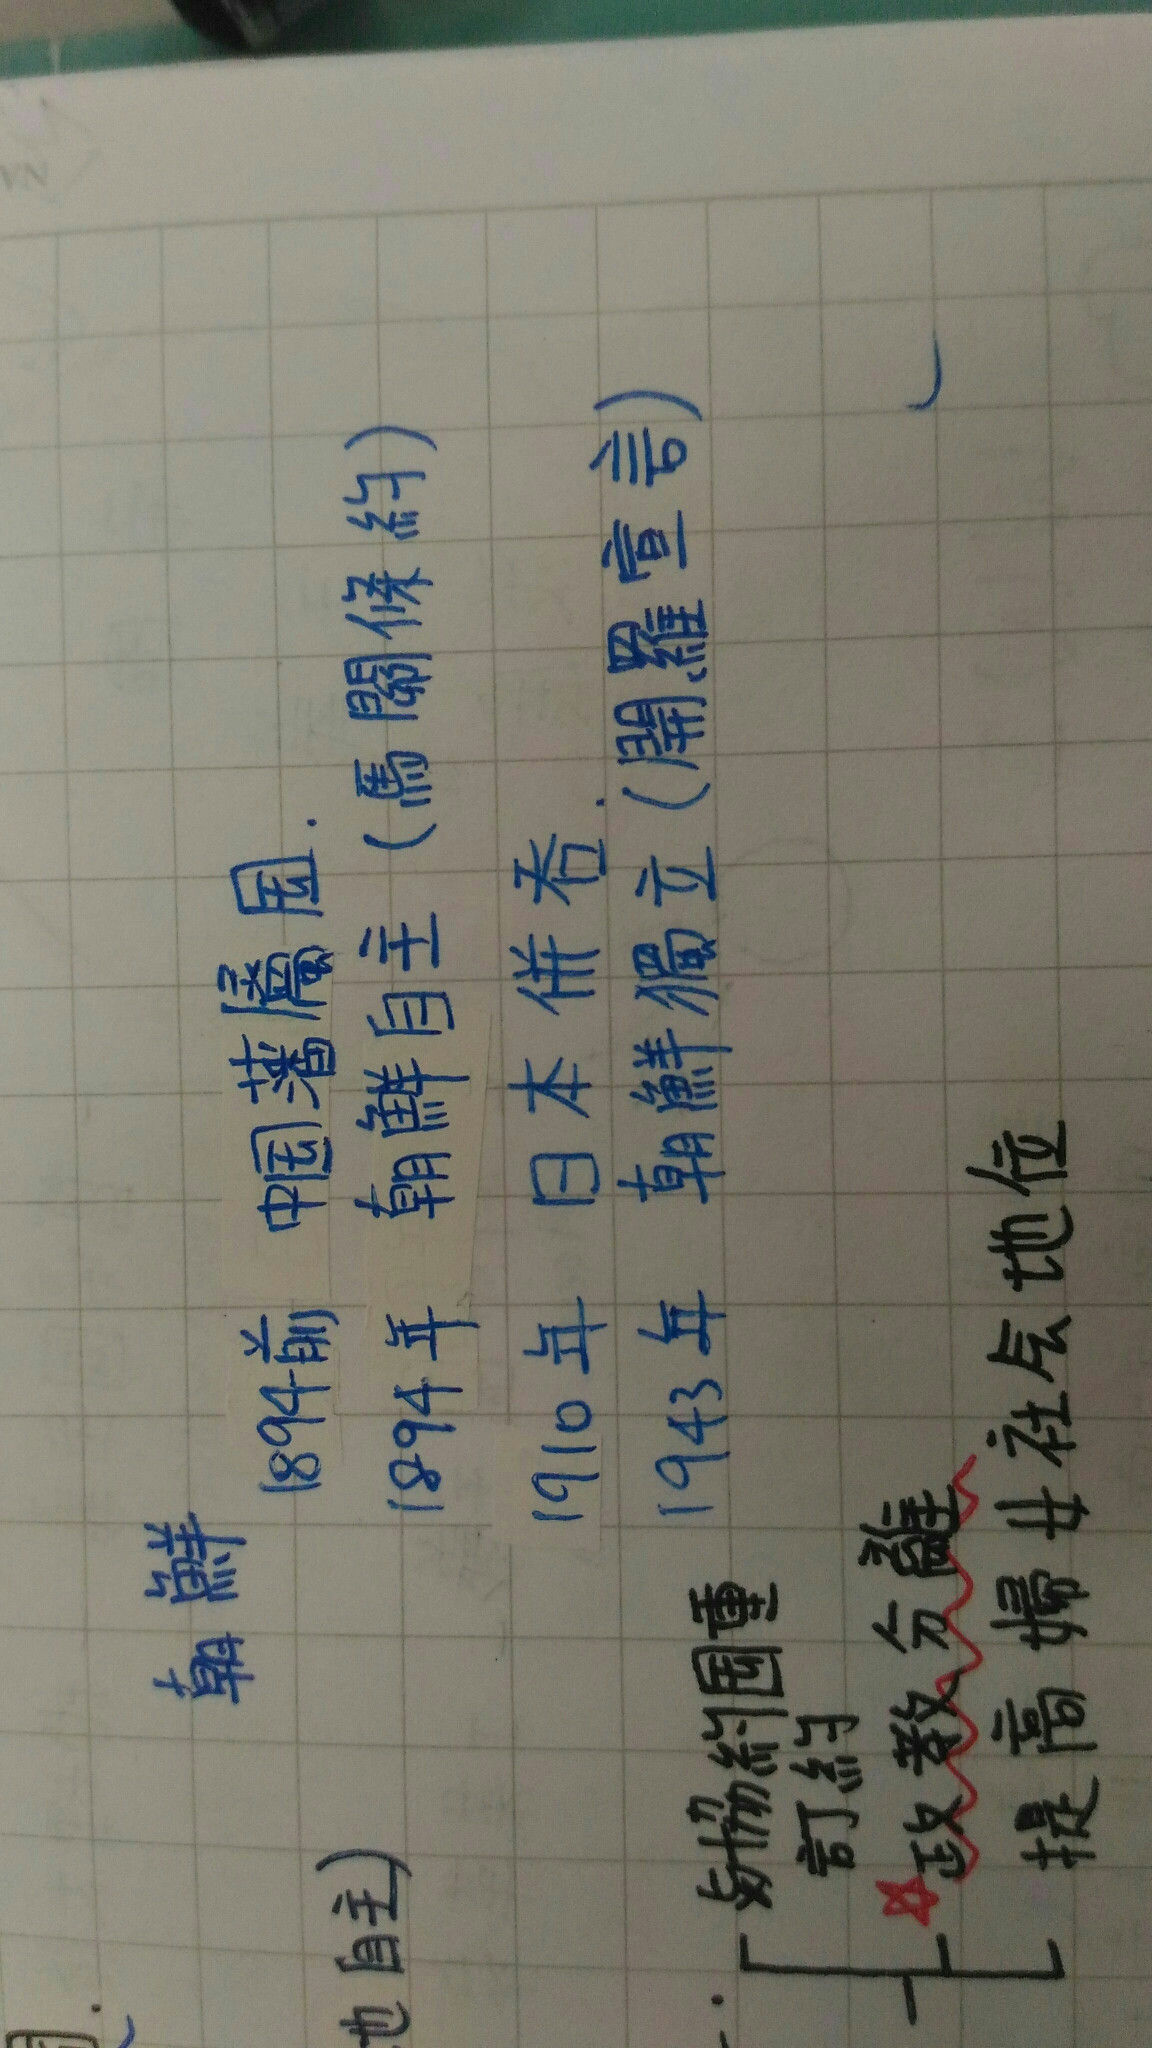 朝鮮
1894前 中国藩属国.
1894年 朝鮮自主(馬關條約)
1910年 日本併吞.
1943年 朝鮮獨立(開羅宣言)
地自主)
與協約國重
訂約
政教分離
提高婦女社会地位